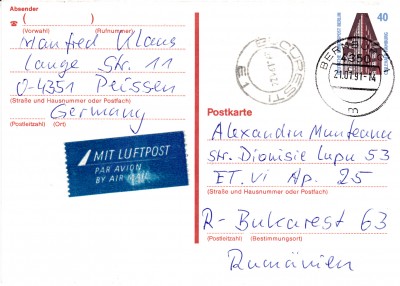 Absender
(          )
(Vorwahl) (Rufnummer)
Manfred Klaus
(Name)
Lange Str. 11
O-4351 Peissen
(Straße und Hausnummer oder Postfach)
Germany
(Postleitzahl) (Ort)
MIT LUFTPOST
PAR AVION
BY AIR MAIL
BUCUREȘTI
DEUTSCHE BUNDESPOST BERLIN
40
4350
21.01.91-14
m
Postkarte
Alexandru Munteanu
str. Dionisie Lupu 53
ET. VI Ap. 25
(Straße und Hausnummer oder Postfach)
R-Bukarest 63
(Postleitzahl) (Bestimmungsort)
Rumänien